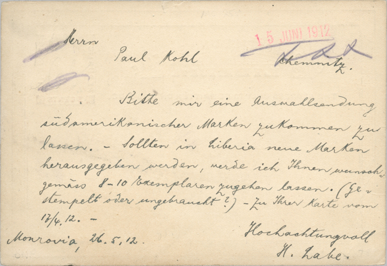 15 JUNI 1912
Herrn
Paul Kohl
Chemnitz.
Bitte mir eine Auswahlsendung
südamerikanischer Marken zukommen zu
lassen. - Sollten in Liberia neue Marken
herausgegeben werden, werde ich Ihnen wunsch-
gemäss 8-10 Exemplaren zugehen lassen. (Ge-
stempelt oder ungebraucht?) - Zu Ihrer Karte vom
17/4.12. -
Hochachtungsvoll
Monrovia, 26.5.12.
H.